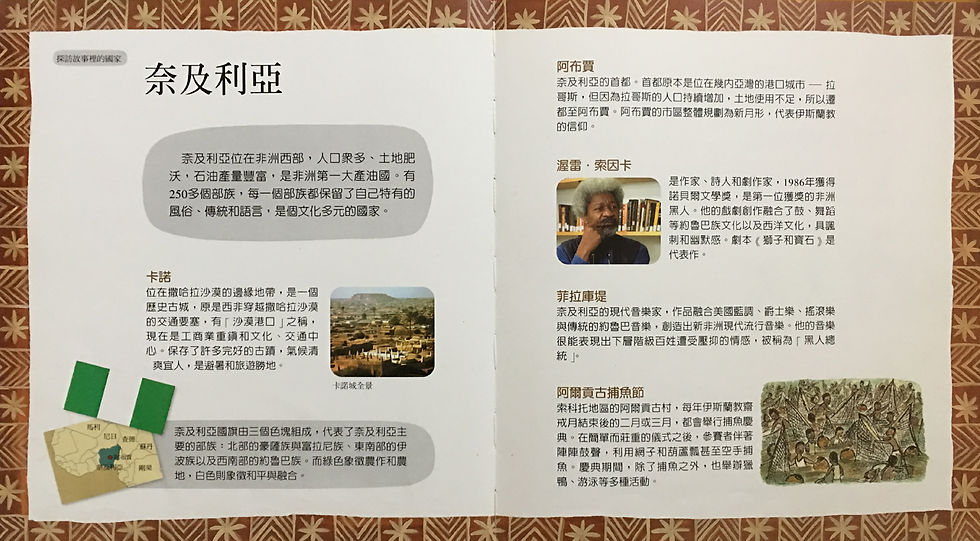 探訪故事裡的國家
奈及利亞
奈及利亞位在非洲西部，人口衆多、土地肥
沃，石油產量豐富，是非洲第一大產油國。有
250多個部族，每一個部族都保留了自己特有的
風俗、傳統和語言，是個文化多元的國家。
卡諾
位在撒哈拉沙漠的邊緣地帶，是一個
歷史古城，原是西非穿越撒哈拉沙漠
的交通要塞，有「沙漠港口」之稱，
現在是工商業重鎮和文化、交通中
心。保存了許多完好的古蹟，氣候清
爽宜人，是避暑和旅遊勝地。
卡諾城全景
馬利
尼日
查德
蘇丹
奈及利亞
剛果
奈及利亞國旗由三個色塊組成，代表了奈及利亞主
要的部族：北部的豪薩族與富拉尼族、東南部的伊
波族以及西南部的約魯巴族。而綠色象徵農作和農
地，白色則象徵和平與融合。
阿布賈
奈及利亞的首都。首都原本是位在幾內亞灣的港口城市 — 拉
哥斯，但因為拉哥斯的人口持續增加，土地使用不足，所以遷
都至阿布賈。阿布賈的市區整體規劃為新月形，代表伊斯蘭教
的信仰。
渥雷·索因卡
是作家、詩人和劇作家，1986年獲得
諾貝爾文學獎，是第一位獲獎的非洲
黑人。他的戲劇創作融合了鼓、舞蹈
等約魯巴族文化以及西洋文化，具諷
刺和幽默感。劇本《獅子和寶石》是
代表作。
菲拉庫堤
奈及利亞的現代音樂家，作品融合美國藍調、爵士樂、搖滾樂
與傳統的約魯巴音樂，創造出新非洲現代流行音樂。他的音樂
很能表現出下層階級百姓遭受壓抑的情感，被稱為「黑人總
統」。
阿爾貢古捕魚節
索科托地區的阿爾貢古村，每年伊斯蘭教齋
戒月結束後的二月或三月，都會舉行捕魚慶
典。在簡單而莊重的儀式之後，參賽者伴著
陣陣鼓聲，利用網子和葫蘆瓢甚至空手捕
魚。慶典期間，除了捕魚之外，也舉辦獵
鴨、游泳等多種活動。